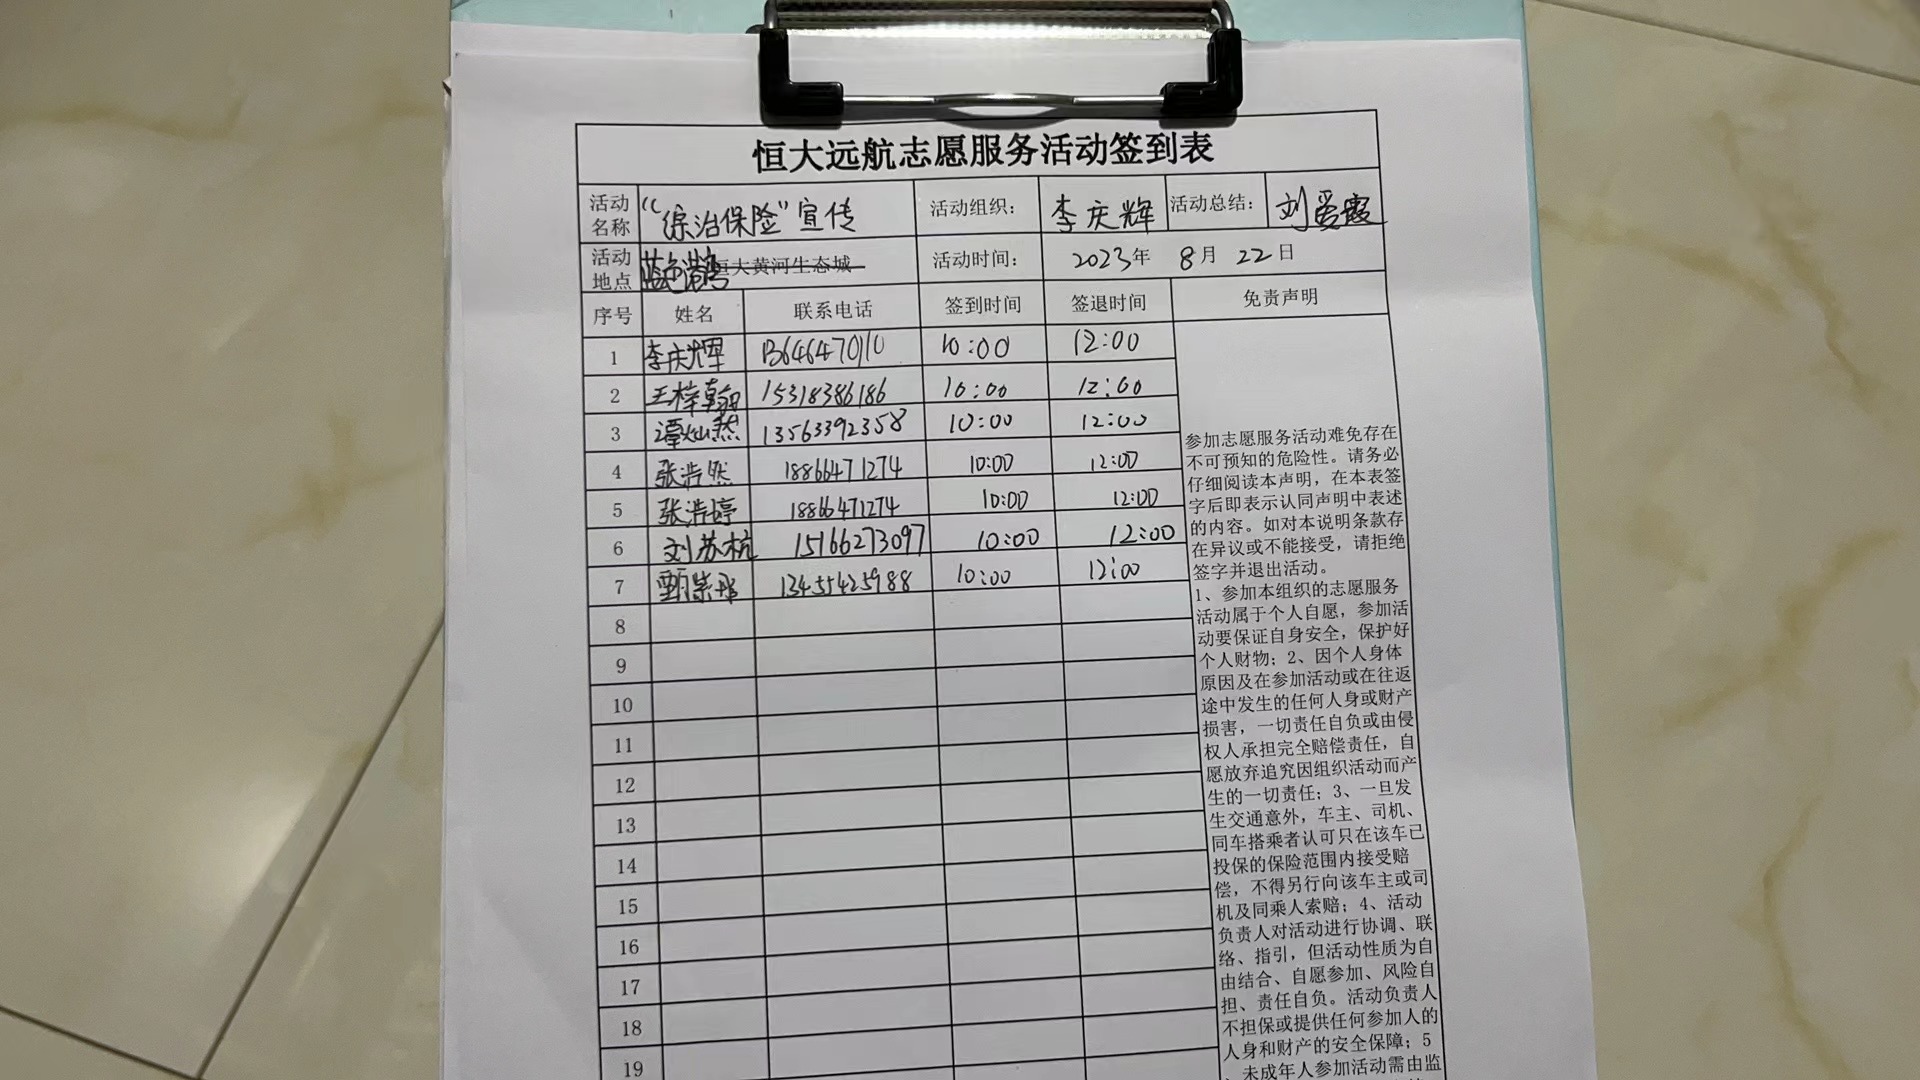 恒大远航志愿服务活动签到表
活动名称 “综治保险”宣传 活动组织： 李庆辉 活动总结： 刘爱霞
活动地点 蓝色港湾 恒大黄河生态城 活动时间： 2023年 8月 22日
序号 姓名 联系电话 签到时间 签退时间 免责声明
1 李庆辉 13646470110 10:00 12:00
2 王梓翰 15318386186 10:00 12:00
3 谭灿然 13563392358 10:00 12:00
4 张浩然 18866471274 10:00 12:00
5 张浩婷 18866471274 10:00 12:00
6 刘苏杭 15166273097 10:00 12:00
7 甄 13455425988 10:00 12:00
8
9
10
11
12
13
14
15
16
17
18
19
参加志愿服务活动难免存在
不可预知的危险性。请务必
仔细阅读本声明，在本表签
字后即表示认同声明中表述
的内容。如对本说明条款存
在异议或不能接受，请拒绝
签字并退出活动。
1、参加本组织的志愿服务
活动属于个人自愿，参加活
动要保证自身安全，保护好
个人财物；2、因个人身体
原因及在参加活动或在往返
途中发生的任何人身或财产
损害，一切责任自负或由侵
权人承担完全赔偿责任，自
愿放弃追究因组织活动而产
生的一切责任；3、一旦发
生交通意外，车主、司机、
同车搭乘者认可只在该车已
投保的保险范围内接受赔
偿，不得另行向该车主或司
机及同乘人索赔；4、活动
负责人对活动进行协调、联
络、指引，但活动性质为自
由结合、自愿参加、风险自
担、责任自负。活动负责人
不担保或提供任何参加人的
人身和财产的安全保障；5
、未成年人参加活动需由监